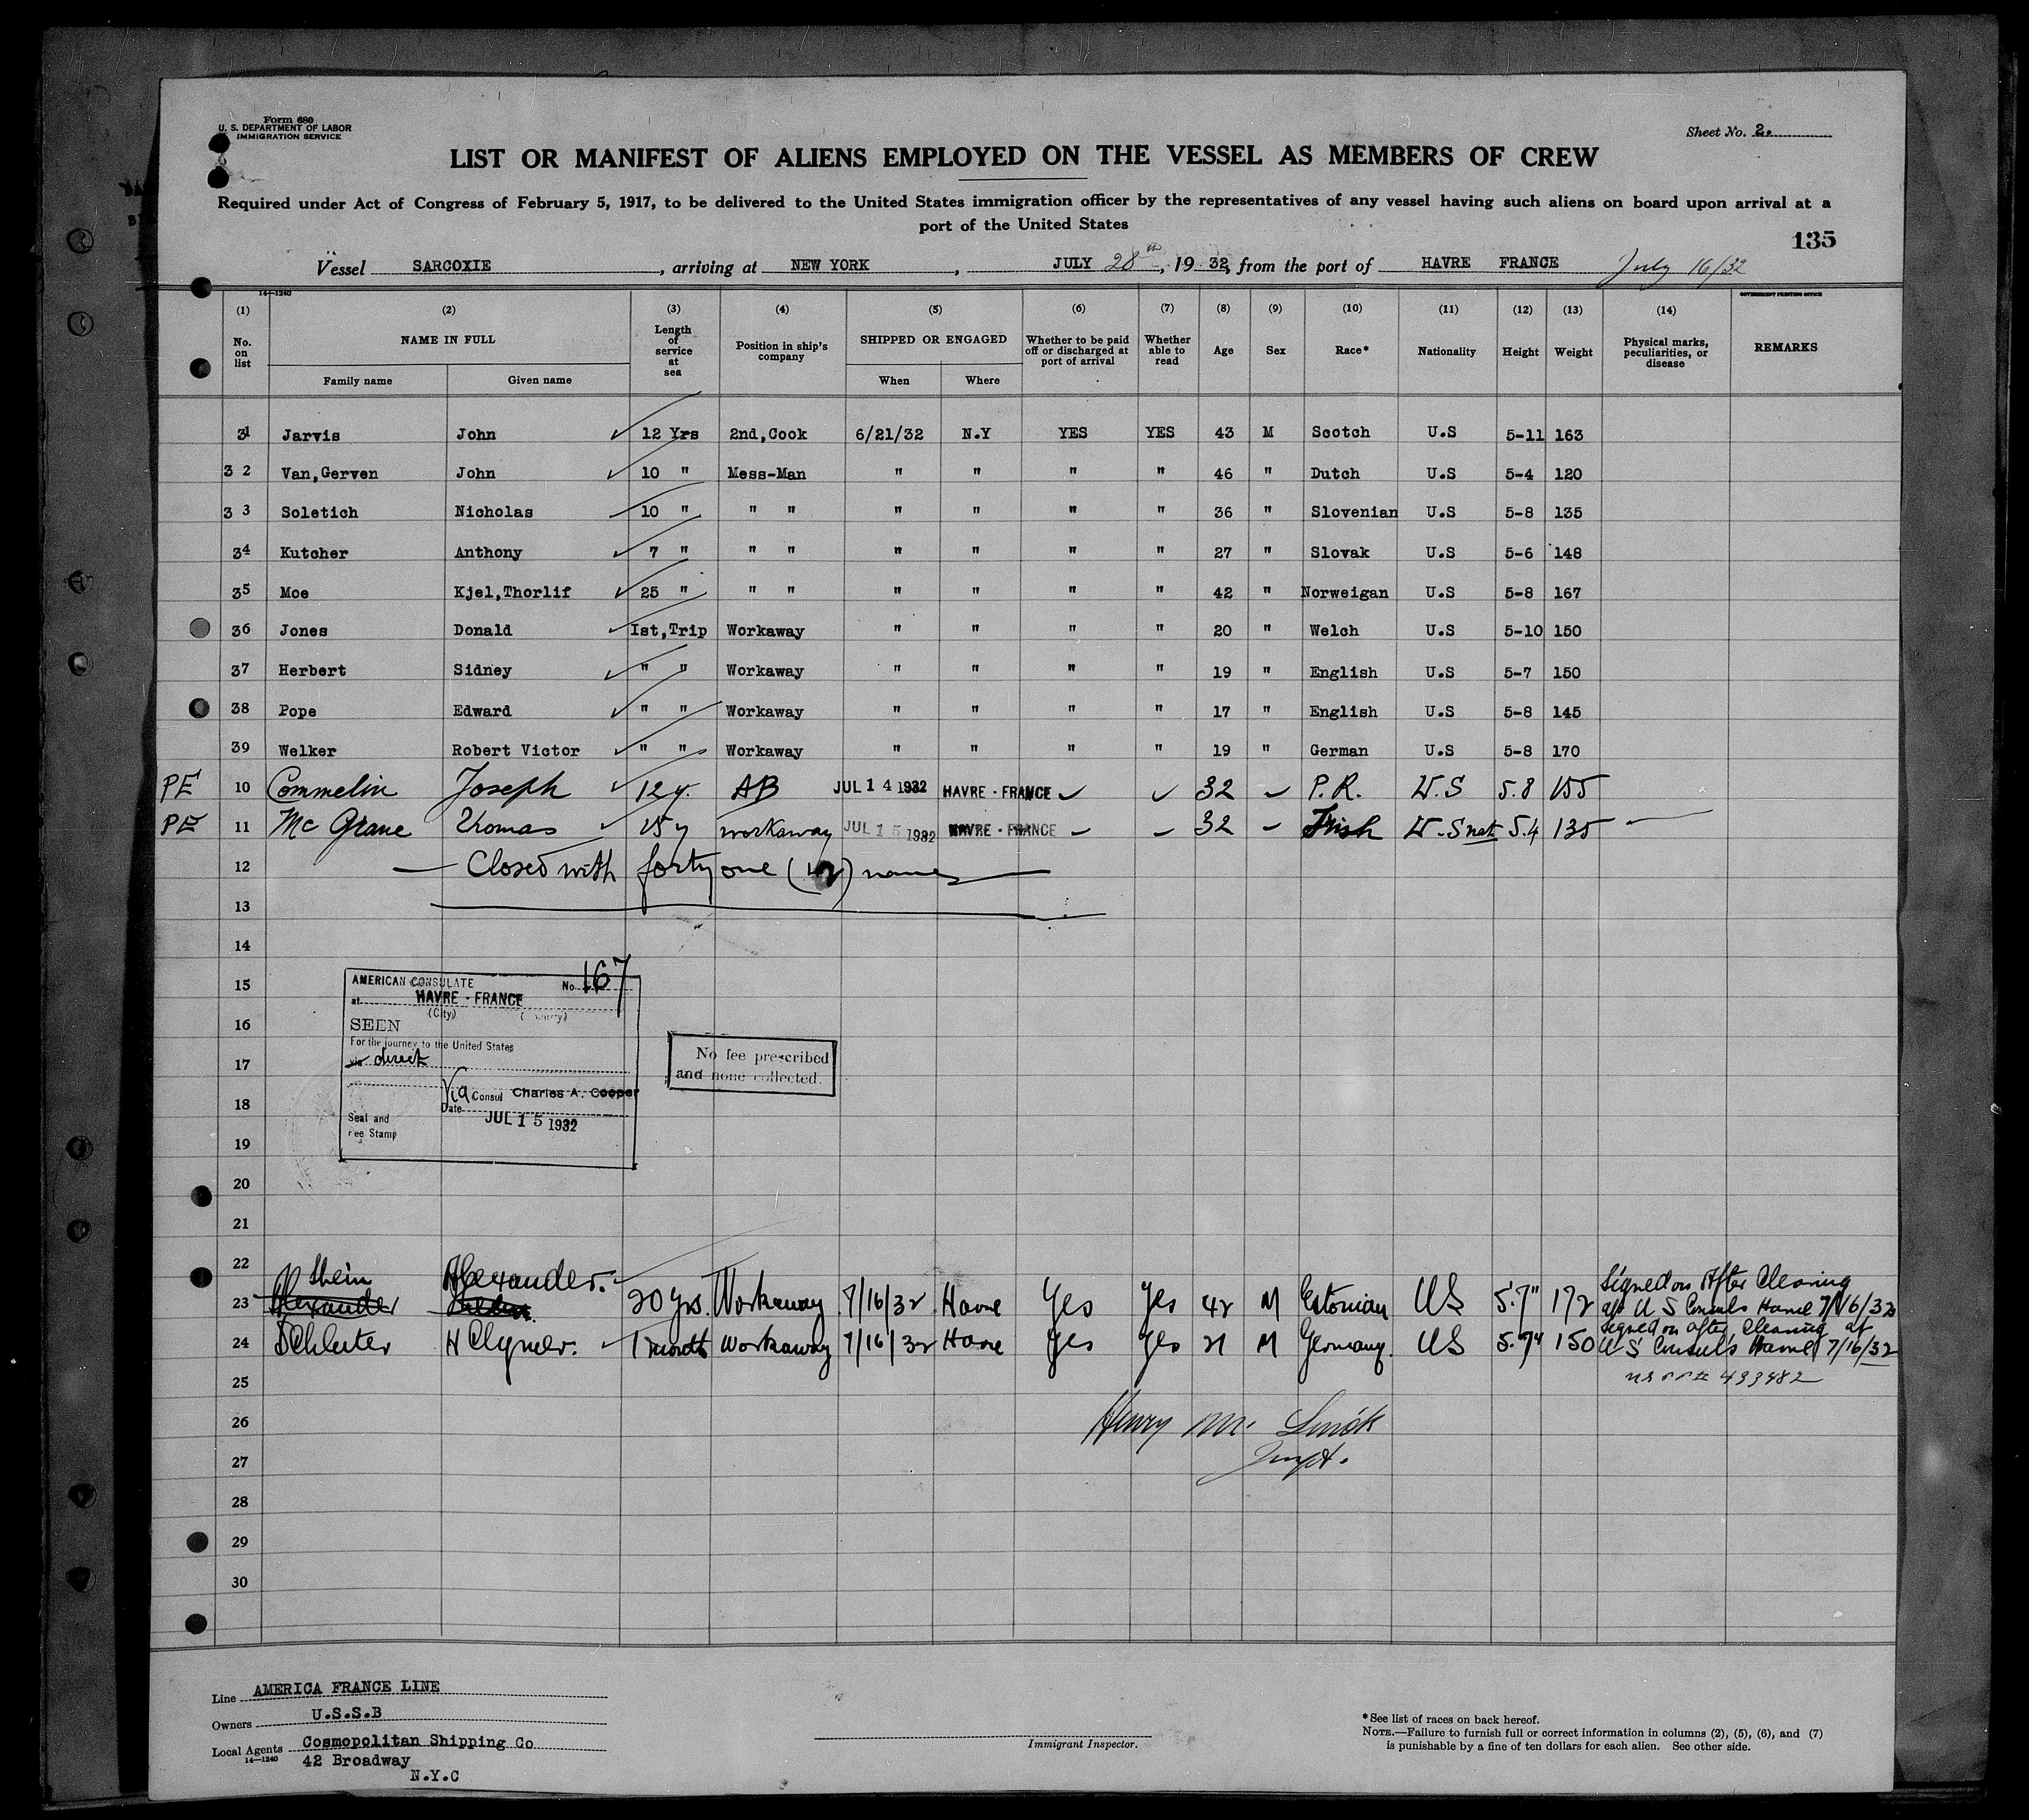 Form 680
U. S. DEPARTMENT OF LABOR
IMMIGRATION SERVICE
Sheet No. 2.
LIST OR MANIFEST OF ALIENS EMPLOYED ON THE VESSEL AS MEMBERS OF CREW
Required under Act of Congress of February 5, 1917, to be delivered to the United States immigration officer by the representatives of any vessel having such aliens on board upon arrival at a
port of the United States
135
Vessel SARCOXIE, arriving at NEW YORK, JULY 28th, 1932, from the port of HAVRE FRANCE July 16/32
14-1240
GOVERNMENT PRINTING OFFICE
(1) (2) (3) (4) (5) (6) (7) (8) (9) (10) (11) (12) (13) (14)
No. on list NAME IN FULL Length of service at sea Position in ship's company SHIPPED OR ENGAGED Whether to be paid off or discharged at port of arrival Whether able to read Age Sex Race* Nationality Height Weight Physical marks, peculiarities, or disease REMARKS
Family name Given name When Where
31 Jarvis John 12 Yrs 2nd,Cook 6/21/32 N.Y YES YES 43 M Scotch U.S 5-11 163
3 2 Van,Gerven John 10 " Mess-Man " " " " 46 " Dutch U.S 5-4 120
3 3 Soletich Nicholas 10 " " " " " " " 36 " Slovenian U.S 5-8 135
34 Kutcher Anthony 7 " " " " " " " 27 " Slovak U.S 5-6 148
35 Moe Kjel,Thorlif 25 " " " " " " " 42 " Norweigan U.S 5-8 167
36 Jones Donald Ist,Trip Workaway " " " " 20 " Welch U.S 5-10 150
37 Herbert Sidney " " Workaway " " " " 19 " English U.S 5-7 150
38 Pope Edward " " Workaway " " " " 17 " English U.S 5-8 145
39 Welker Robert Victor " " Workaway " " " " 19 " German U.S 5-8 170
PE 10 Commelin Joseph 12 y. AB JUL 14 1932 HAVRE - FRANCE 32 P.R. U.S 5.8 155
PE 11 Mc Grane Thomas 15 y workaway JUL 15 1932 HAVRE - FRANCE 32 Irish U.S nat 5.4 135
12 Closed with forty one names
13
14
15
AMERICAN CONSULATE No. 167
at HAVRE - FRANCE
(City) (Country)
16
SEEN
For the journey to the United States
17
via direct
No fee prescribed
and none collected.
18
Via Consul Charles A. Cooper
Date JUL 15 1932
Seal and
Fee Stamp
19
20
21
22
Shein Alexander.
23 Alexander 20 yrs. Workaway 7/16/32 Havre Yes Yes 42 M Estonian US 5.7" 172 Signed on After Clearing
at U S Consuls Havre 7/16/32
24 Schluter H Clymer. 1 month Workaway 7/16/32 Havre Yes Yes 21 M Germany. US 5.7" 150 Signed on after Clearing at
U S Consuls Havre 7/16/32
25 433482
26 Henry M.
27
28
29
30
Line AMERICA FRANCE LINE
Owners U.S.S.B
Local Agents Cosmopolitan Shipping Co
14-1240
42 Broadway
N.Y.C
Immigrant Inspector.
* See list of races on back hereof.
NOTE.—Failure to furnish full or correct information in columns (2), (5), (6), and (7)
is punishable by a fine of ten dollars for each alien. See other side.